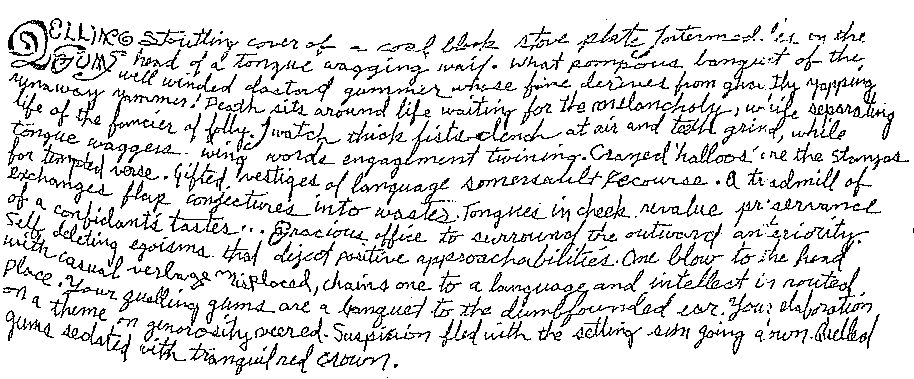 QELLING Stoutting cover of a coal black stove plate fostermed lies on the
GUMS head of a tongue wagging waif. What pompous banquet of the
well winded dastard gummer whose fame derives from ghastly yapping
runaway yammer! Death sits around life waiting for the melancholy, while separating
life of the fancier of folly. I watch thick fists clench at air and teeth grind, while
tongue waggers wing words engagement twining. Crazed 'halloos' are the stanzas
for tempted verse. Gifted vestiges of language somersault recourse. A treadmill of
exchanges flap conjectures into wastes. Tongues in cheek revalue preservance
of a confidant's tastes... Gracious office to surround the outward anteriority.
Self deleting egoisms that deject positive approachabilities. One blow to the head
with casual verbage misplaced, chains one to a language and intellect is routed
place. Your quelling gums are a banquet to the dumbfounded ear. Your elaboration
on a theme on generosity veered. Suspicion fled with the setting sun going down. Quelled
gums sedated with tranquil red crown.